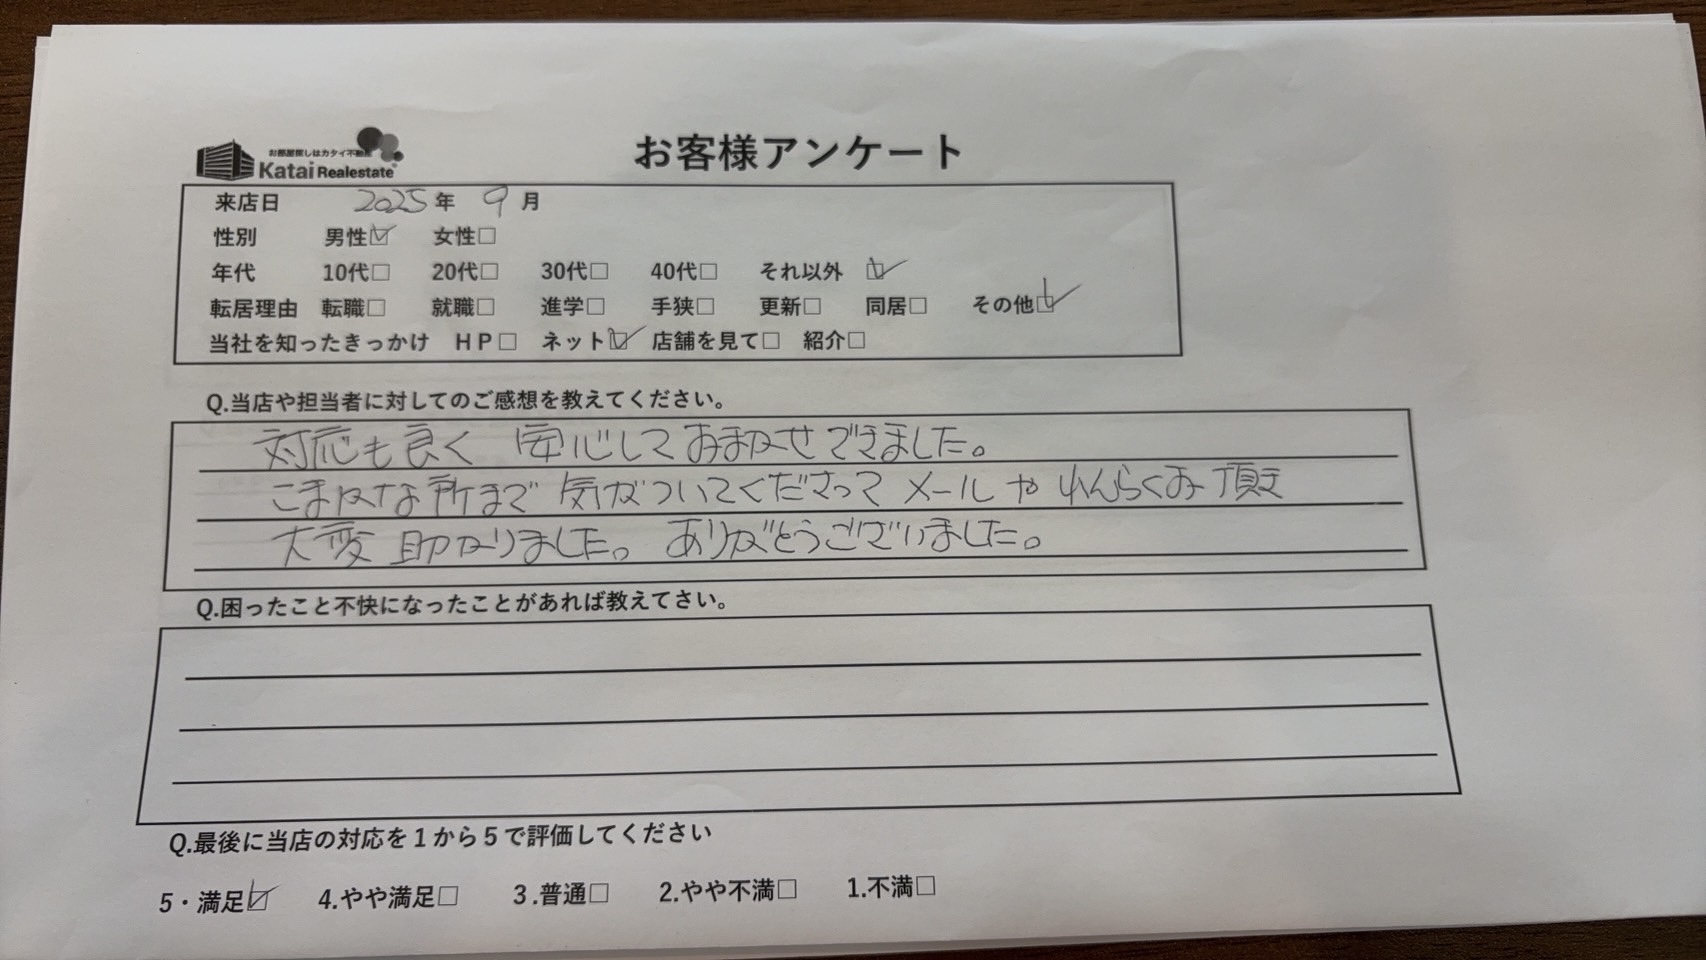 お部屋探しはカタイ不動産
Katai Realestate
お客様アンケート
来店日 2025年 9月
性別 男性☑ 女性□
年代 10代□ 20代□ 30代□ 40代□ それ以外 ☑
転居理由 転職□ 就職□ 進学□ 手狭□ 更新□ 同居□ その他☑
当社を知ったきっかけ HP□ ネット☑ 店舗を見て□ 紹介□
Q.当店や担当者に対してのご感想を教えてください。
対応も良く 安心しておまかせできました。
こまかな所まで 気がついてくださって メールや れんらくお頂き
大変 助かりました。ありがとうございました。
Q.困ったこと不快になったことがあれば教えてさい。
Q.最後に当店の対応を1から5で評価してください
5・満足☑ 4.やや満足□ 3.普通□ 2.やや不満□ 1.不満□